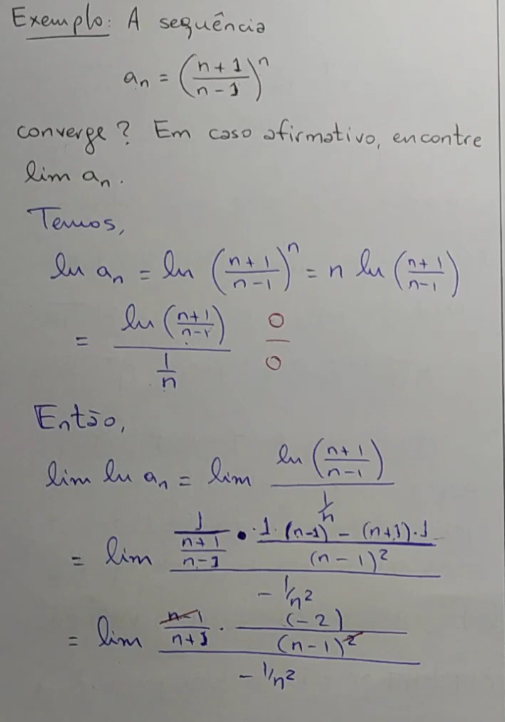 Exemplo: A sequência
a_n = ((n+1)/(n-1))^n
converge? Em caso afirmativo, encontre
lim a_n.
Temos,
ln a_n = ln ((n+1)/(n-1))^n = n ln ((n+1)/(n-1))
= ln((n+1)/(n-1)) / (1/n) 0/0
Então,
lim ln a_n = lim ln((n+1)/(n-1)) / (1/n)
= lim (1/((n+1)/(n-1)) · (1·(n-1) - (n+1)·1)/(n-1)²) / (-1/n²)
= lim ((n-1)/(n+1) · (-2)/(n-1)²) / (-1/n²)